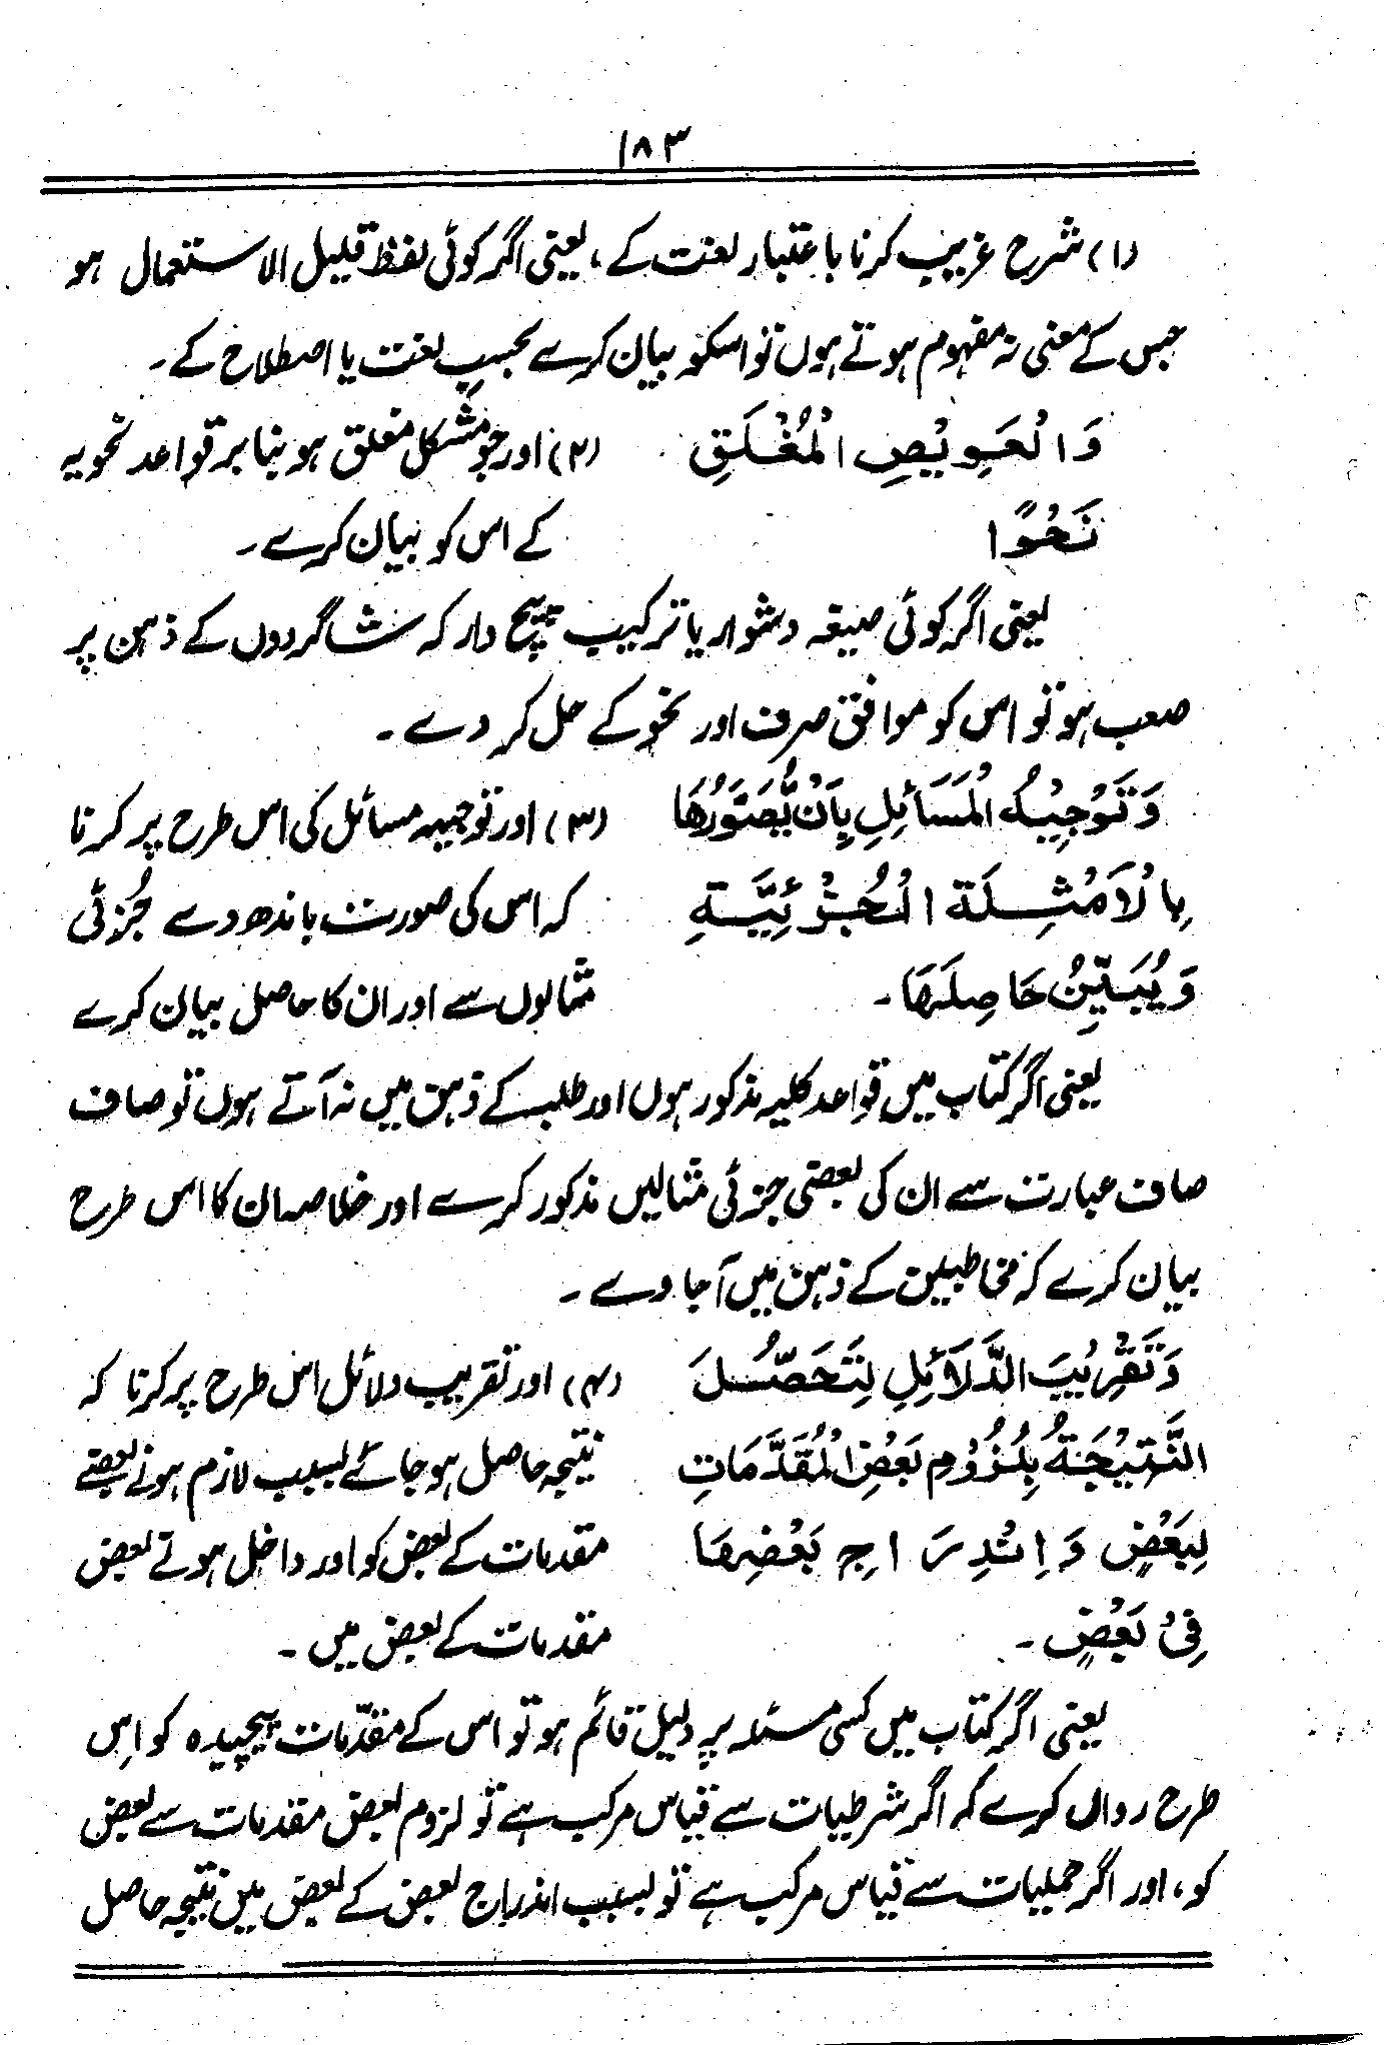 ۱۸۳
(۱) شرح غریب کرنا باعتبار لغت کے، یعنی اگر کوئی لفظ قلیل الاستعمال ہو
جس کے معنی نہ مفہوم ہوتے ہوں تو اسکو بیان کرے بحسبِ لغت یا اصطلاح کے۔
وَالْعَوِيْصِ الْمُغْلَقِ (۲) اور جو مشکل مغلق ہو بنا بر قواعد نحویہ
نَحْوًا کے اس کو بیان کرے۔
یعنی اگر کوئی صیغہ دشوار یا ترکیب پیچ دار کہ شاگردوں کے ذہن پر
صعب ہو تو اس کو موافق صرف اور نحو کے حل کر دے۔
وَتَوْجِيْهُ الْمَسَائِلِ بِاَنْ يُّصَوِّرُهَا (۳) اور توجیہہ مسائل کی اس طرح پر کرنا
بِالْاَمْثِلَةِ الْجُزْئِيَّةِ کہ اس کی صورت باندھ دے جُزئی
وَيُبَيِّنُ حَاصِلَهَا۔ مثالوں سے اور ان کا حاصل بیان کرے
یعنی اگر کتاب میں قواعد کلیہ مذکور ہوں اور طلبہ کے ذہن میں نہ آتے ہوں تو صاف
صاف عبارت سے ان کی بعضی جزئی مثالیں مذکور کرے اور خلاصہ ان کا اس طرح
بیان کرے کہ مخاطبین کے ذہن میں آجاوے۔
وَتَقْرِيْبَ الدَّلَائِلِ لِتَحَصُّلَ (۴) اور تقریب دلائل اس طرح پر کرنا کہ
النَّتِيْجَةُ بِلُزُوْمِ بَعْضِ الْمُقَدَّمَاتِ نتیجہ حاصل ہو جائے بسبب لازم ہونے بعضے
لِبَعْضٍ وَاِنْدِرَاجِ بَعْضِهَا مقدمات کے بعض کو اور داخل ہوتے بعض
فِیْ بَعْضٍ۔ مقدمات کے بعض میں۔
یعنی اگر کتاب میں کسی مسئلہ پر دلیل قائم ہو تو اس کے مقدّمات پیچیدہ کو اِس
طرح رواں کرے کہ اگر شرطیات سے قیاس مرکب ہے تو لزوم بعض مقدمات سے بعض
کو، اور اگر حملیات سے قیاس مرکب ہے تو بسبب اندراج بعض کے بعض میں نتیجہ حاصل